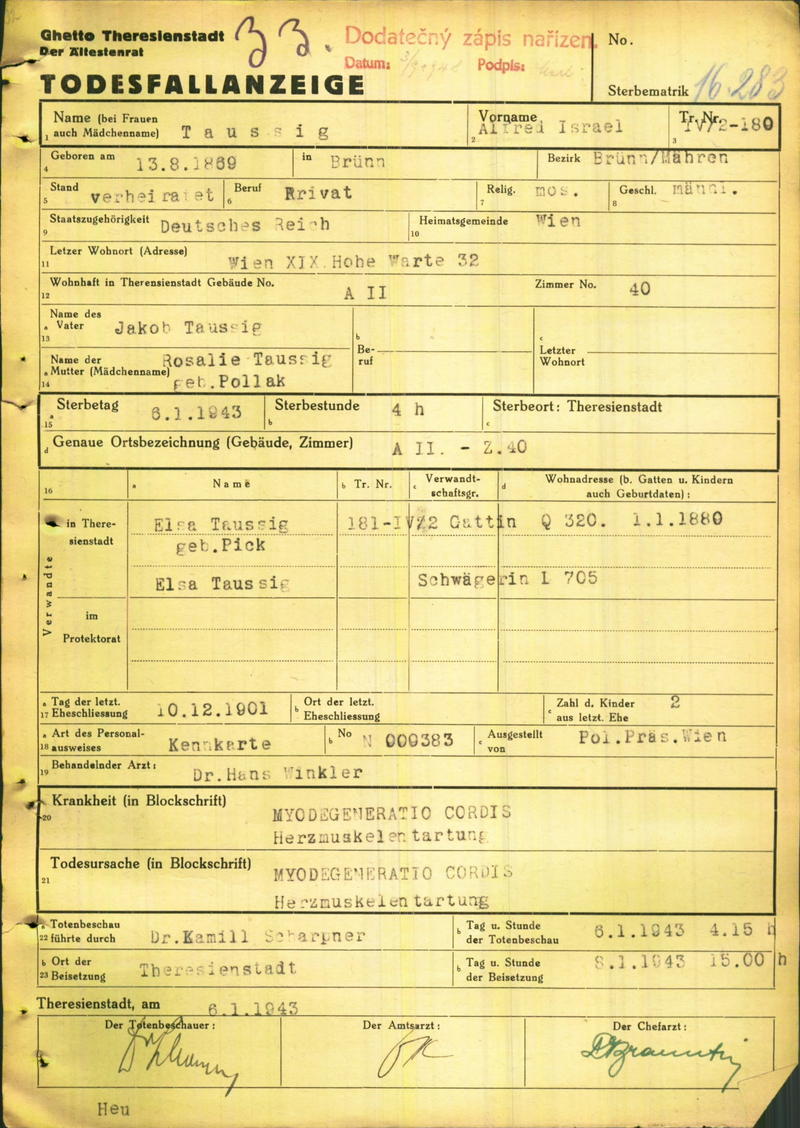 Ghetto Theresienstadt
Der Ältestenrat
Dodatečný zápis nařízen.
Datum: Podpis:
No.
TODESFALLANZEIGE
Sterbematrik 16.283
Name (bei Frauen auch Mädchenname) Taussig Vorname Alfred Israel Tr. Nr. IV/2-180
1 2 3
Geboren am 13.8.1869 in Brünn Bezirk Brünn/Mähren
4
Stand verheiratet Beruf Privat Relig. mos. Geschl. männl.
5 6 7 8
Staatszugehörigkeit Deutsches Reich Heimatsgemeinde Wien
9 10
Letzer Wohnort (Adresse)
11 Wien XIX.Hohe Warte 32
Wohnhaft in Therensienstadt Gebäude No. A II Zimmer No. 40
12
Name des
a Vater Jakob Taussig
13
b Beruf
c Letzter Wohnort
Name der Rosalie Taussig
a Mutter (Mädchenname) geb.Pollak
14
Sterbetag 6.1.1943 Sterbestunde 4 h Sterbeort: Theresienstadt
a 15 b c
d Genaue Ortsbezeichnung (Gebäude, Zimmer) A II. - Z.40
16 a Name b Tr. Nr. c Verwandtschaftsgr. d Wohnadresse (b. Gatten u. Kindern auch Geburtdaten):
Verwandte
in Theresienstadt
Elsa Taussig 181-IV/2 Gattin Q 320. 1.1.1880
geb.Pick
Elsa Taussig Schwägerin L 705
im
Protektorat
a Tag der letzt.
17 Eheschliessung 10.12.1901 b Ort der letzt. Eheschliessung c Zahl d. Kinder aus letzt. Ehe 2
a Art des Personal-
18 ausweises Kennkarte b No N 000383 c Ausgestellt von Pol.Präs.Wien
Behandelnder Arzt:
19 Dr.Hans Winkler
Krankheit (in Blockschrift)
20 MYODEGENERATIO CORDIS
Herzmuskelentartung
Todesursache (in Blockschrift)
21 MYODEGENERATIO CORDIS
Herzmuskelentartung
a Totenbeschau
22 führte durch Dr.Kamill b Tag u. Stunde der Totenbeschau 6.1.1943 4.15 h
b Ort der
23 Beisetzung Theresienstadt b Tag u. Stunde der Beisetzung 8.1.1943 15.00 h
Theresienstadt, am 6.1.1943
Der Totenbeschauer: Der Amtsarzt: Der Chefarzt:
Heu